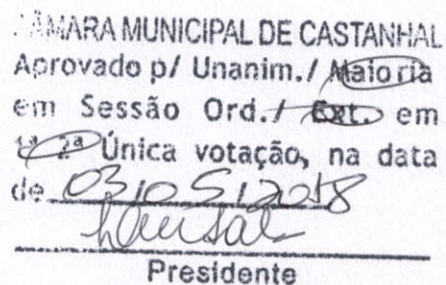 CÂMARA MUNICIPAL DE CASTANHAL
Aprovado p/ Unanim./ Maioria
em Sessão Ord./ Ext. em
1ª 2ª Única votação, na data
de 03/05/2018
Presidente